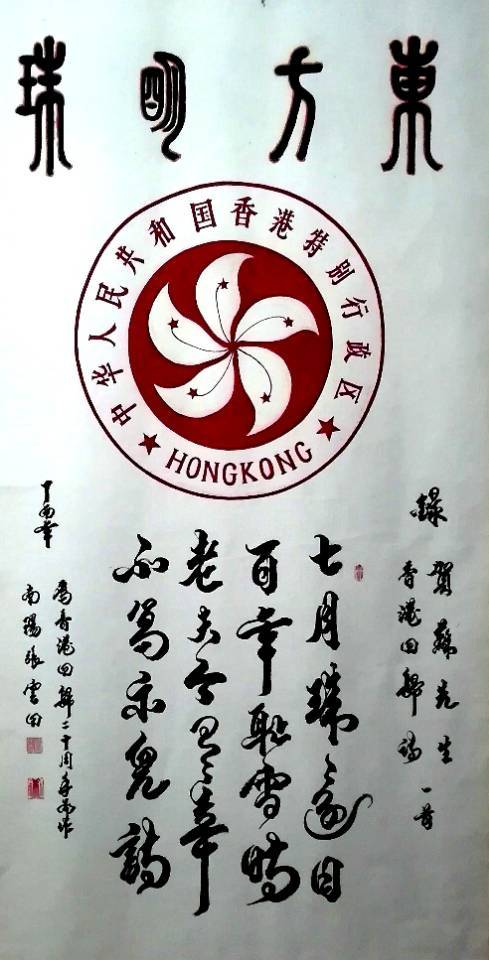 東方明珠
中华人民共和国香港特别行政区
HONGKONG
錄賀蘇先生
香港回歸詩一首
七月珠還日
百年恥雪時
老夫今幸
不示兒詩
丁酉年
為香港回歸二十周年而作
南陽張雲田